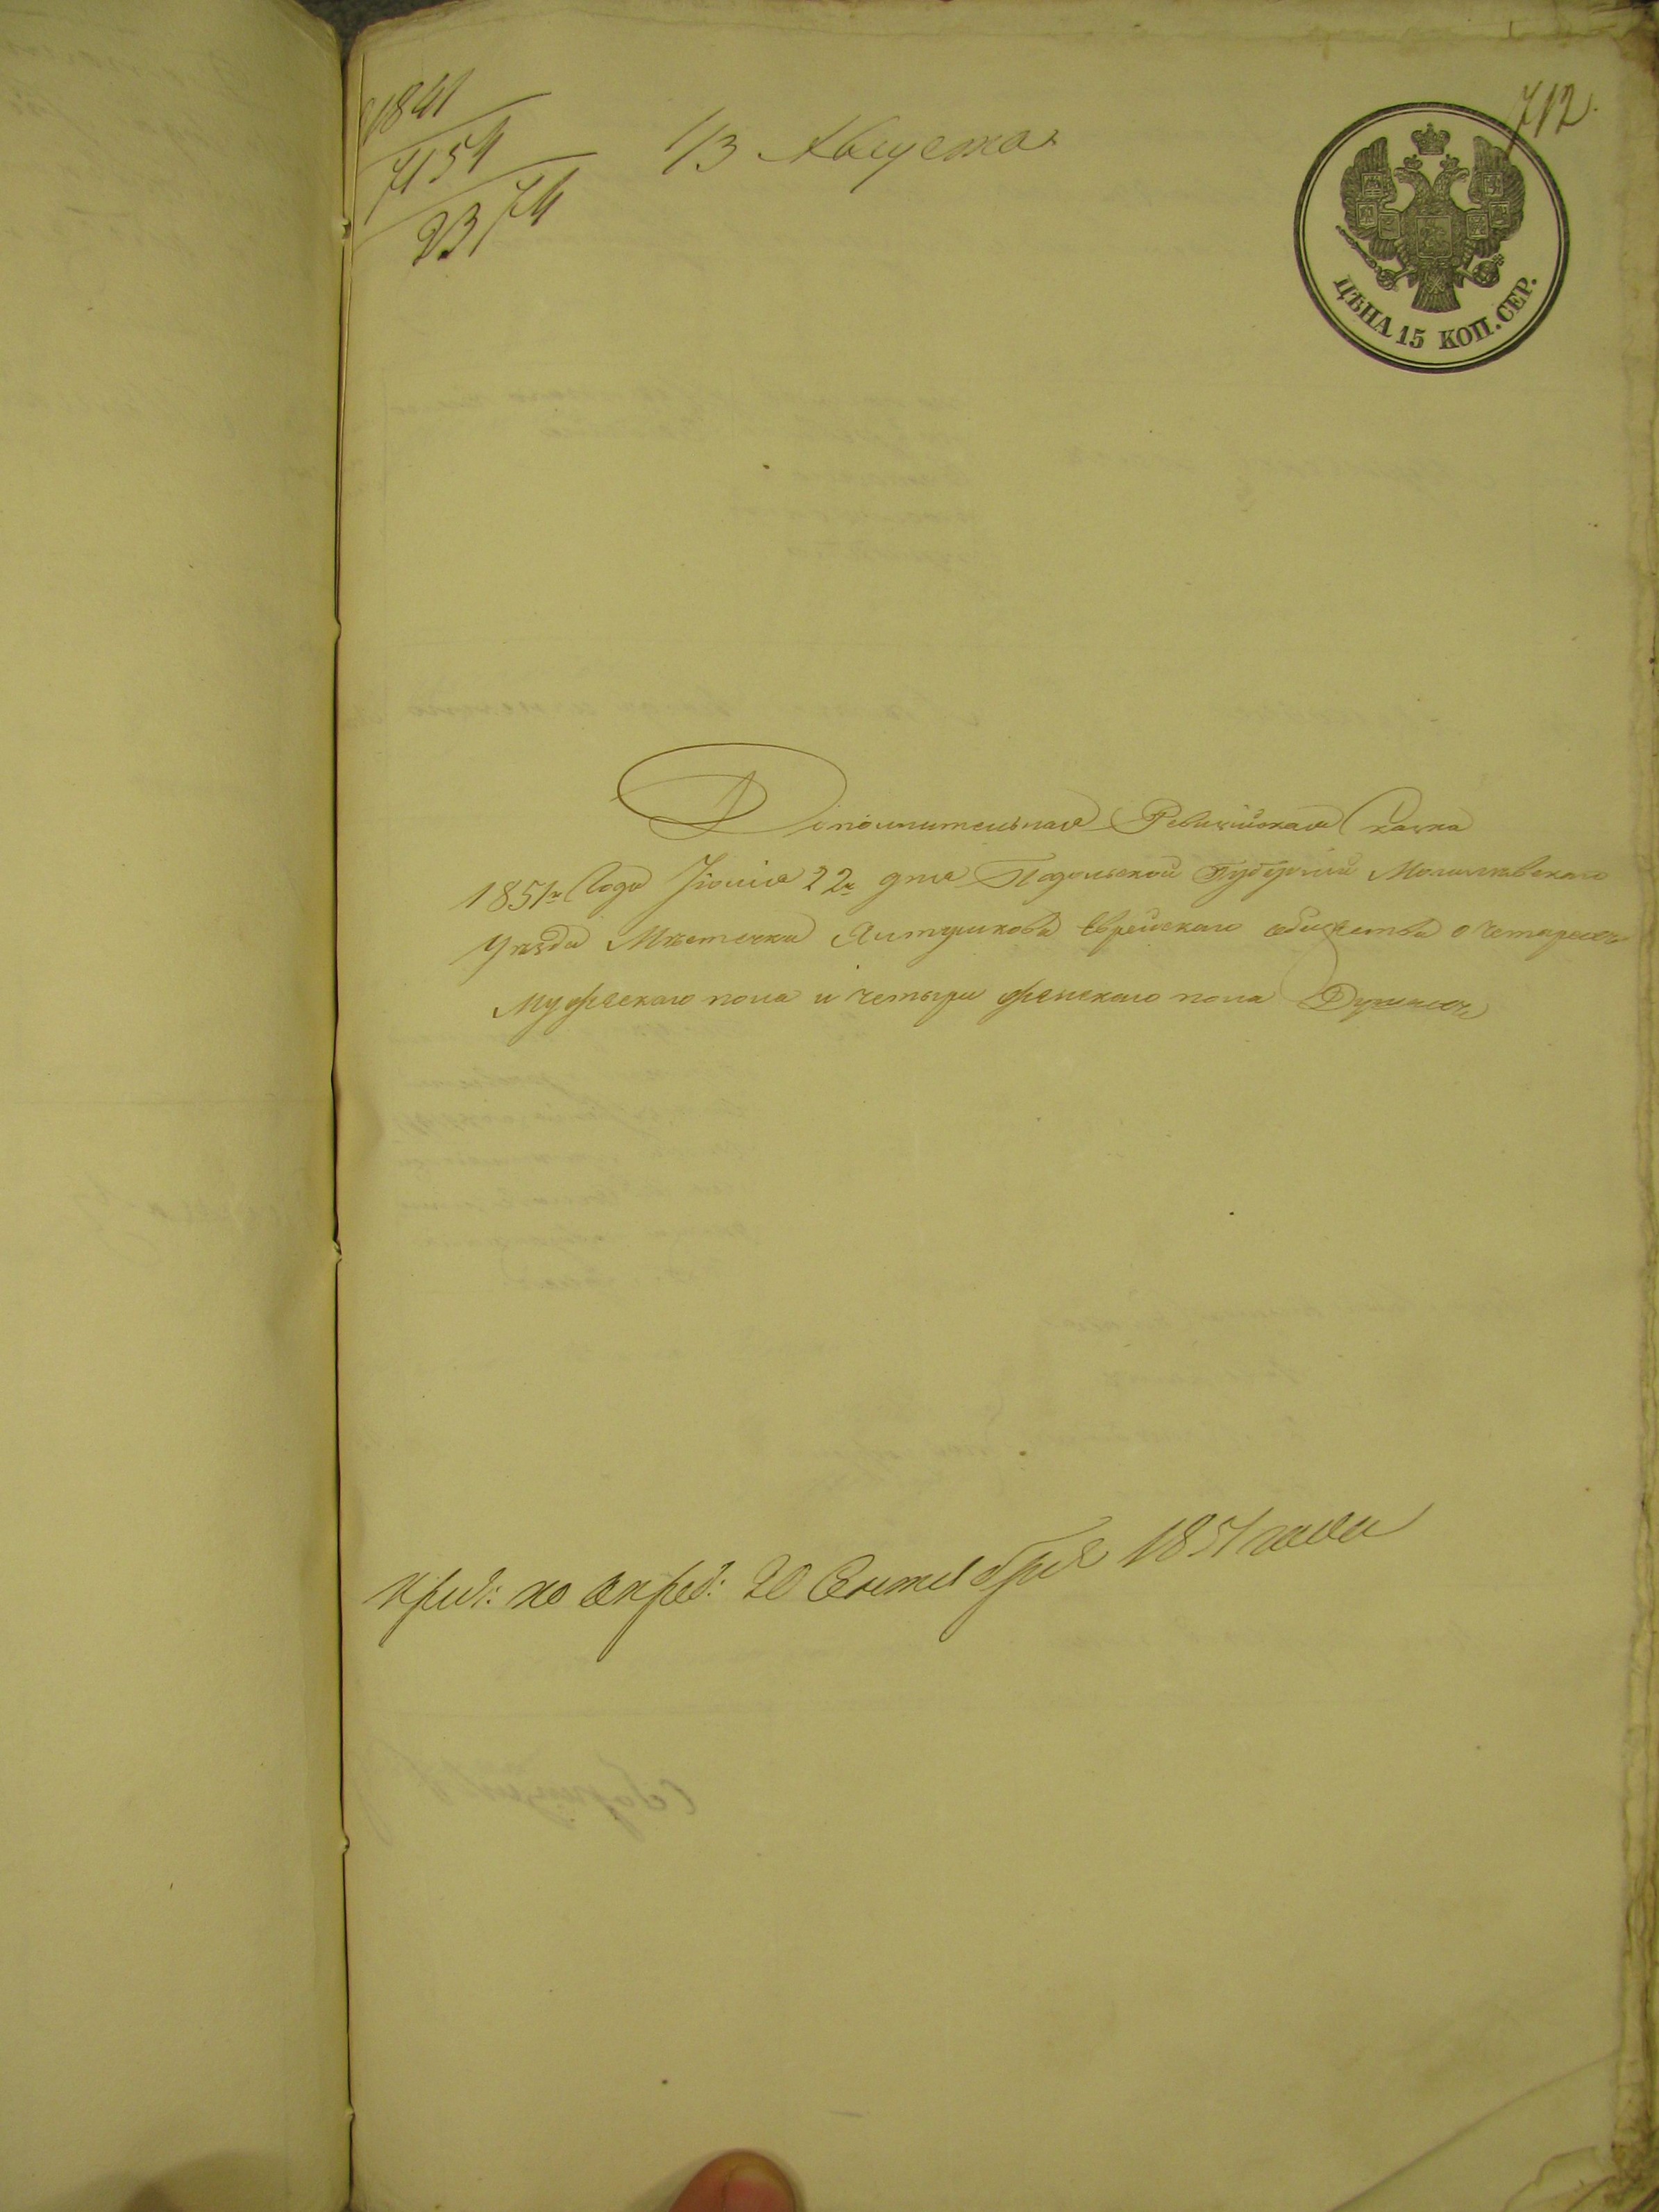 712.
1841
7154
2374
1/3 Августа
ЦѢНА 15 КОП. СЕР.
Дополнительная Ревизийская Сказка
1851го Года Іюлія 22го дня Подольской Губерніи Могилевскаго
Уѣзда Мѣстечка Ялтушкова Еврейскаго общества о четырехъ
Мужескаго пола и четыри женскаго пола Душахъ
по опред: 20 Сентября 1851 года